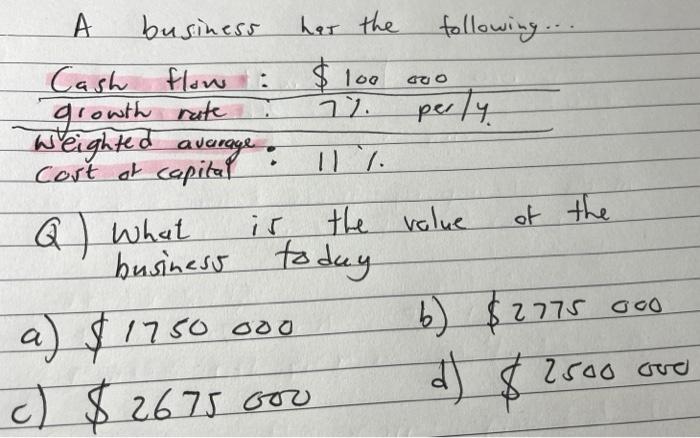 A business has the following...
Cash flow : $ 100 000
growth rate : 7% per/y.
Weighted avarage
cost of capital : 11 %.
Q) What is the value of the
business today
a) $ 1750 000
b) $ 2775 000
c) $ 2675 000
d) $ 2500 000